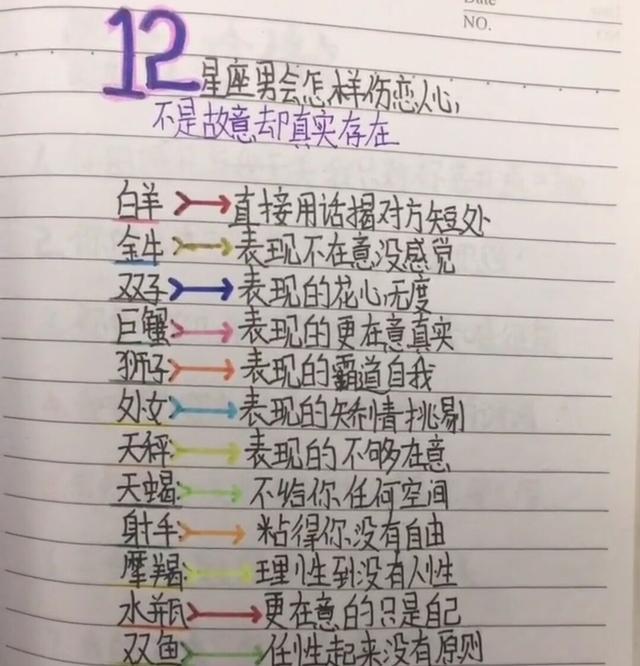 Date
NO.
12星座男会怎样伤恋人心,
不是故意却真实存在
白羊 直接用话揭对方短处
金牛 表现不在意没感觉
双子 表现的花心无度
巨蟹 表现的更在意真实
狮子 表现的霸道自我
处女 表现的矫情挑剔
天秤 表现的不够在意
天蝎 不给你任何空间
射手 粘得你没有自由
摩羯 理性到没有人性
水瓶 更在意的只是自己
双鱼 任性起来没有原则